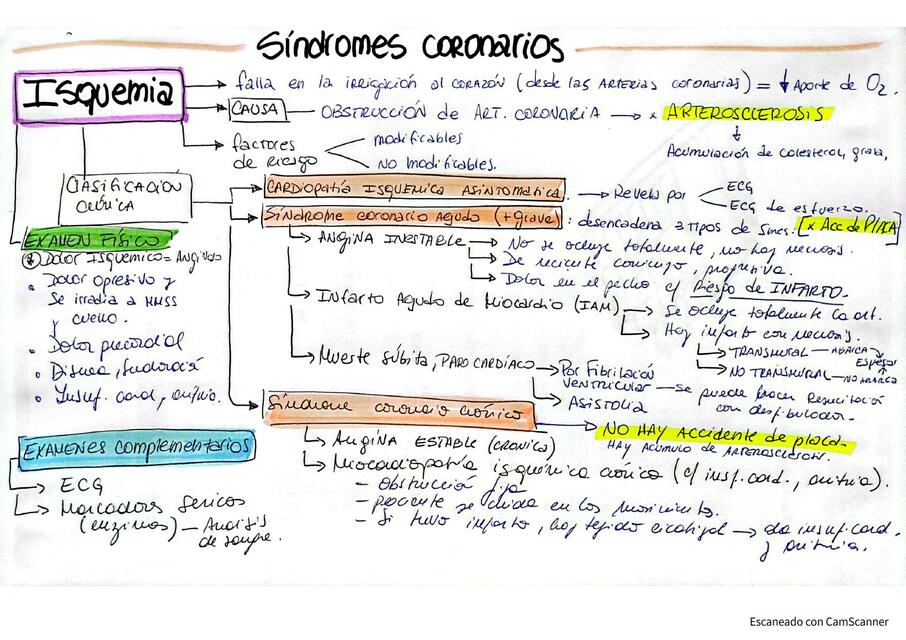 Síndromes coronarios
Isquemia
falla en la irrigación al corazón (desde las arterias coronarias) = ↓ Aporte de O2.
CAUSA — OBSTRUCCIÓN de ART. CORONARIA → x ARTEROSCLEROSIS
↓
Acumulación de colesterol, grasa,
factores de riesgo
modificables
NO modificables.
Clasificación clínica
CARDIOPATÍA ISQUEMICA ASINTOMATICA. → Revela por
ECG
ECG de esfuerzo.
Síndrome coronario Agudo (+grave) : desencadena 3 tipos de Sínes. [x Acc de PLACA]
→ ANGINA INESTABLE
→ No se ocluye totalmente, no hay necrosis.
→ De reciente comienzo, progresiva.
→ Dolor en el pecho c/ Riesgo de INFARTO.
→ Infarto Agudo de Miocardio (IAM)
→ Se ocluye totalmente la art.
→ Hay infarto con necrosis.
→ TRANSMURAL — ABARCA
Espesor
→ NO TRANSMURAL — NO ABARCA
→ Muerte Súbita, PARO CARDÍACO
→ Por Fibrilación ventricular — se puede hacer Resucitación
con desfibrilador.
→ ASISTOLIA
Síndrome coronario crónico
→ NO HAY ACCIDENTE de placa.
HAY ACUMULO DE ARTEROSCLEROSIS.
→ ANGINA ESTABLE (CRONICA)
→ Miocardiopatía isquémica crónica (c/ insf. card., arritmia).
- Obstrucción fija
- paciente se cuida en los movimientos.
- Si tuvo infarto, hay tejido cicatrizal → da insuf. card.
y arritmia.
EXAMEN FÍSICO
* Dolor Isquemico = Anginoso
• Dolor opresivo y
Se irradia a MMSS
y cuello.
• Dolor precordial
• Disnea, sudoración
• Insuf. card, arritmia.
EXAMENES complementarios
→ ECG
→ Marcadores sericos
(enzimas) — Análisis
de sangre.
Escaneado con CamScanner